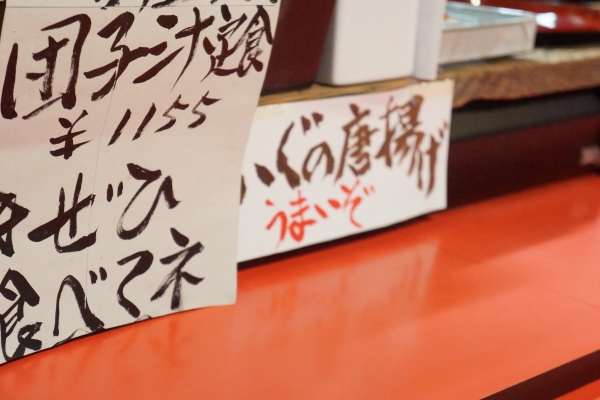 団子汁定食
¥1155
ぜひ
食べてネ
いぐの唐揚げ
うまいぞ